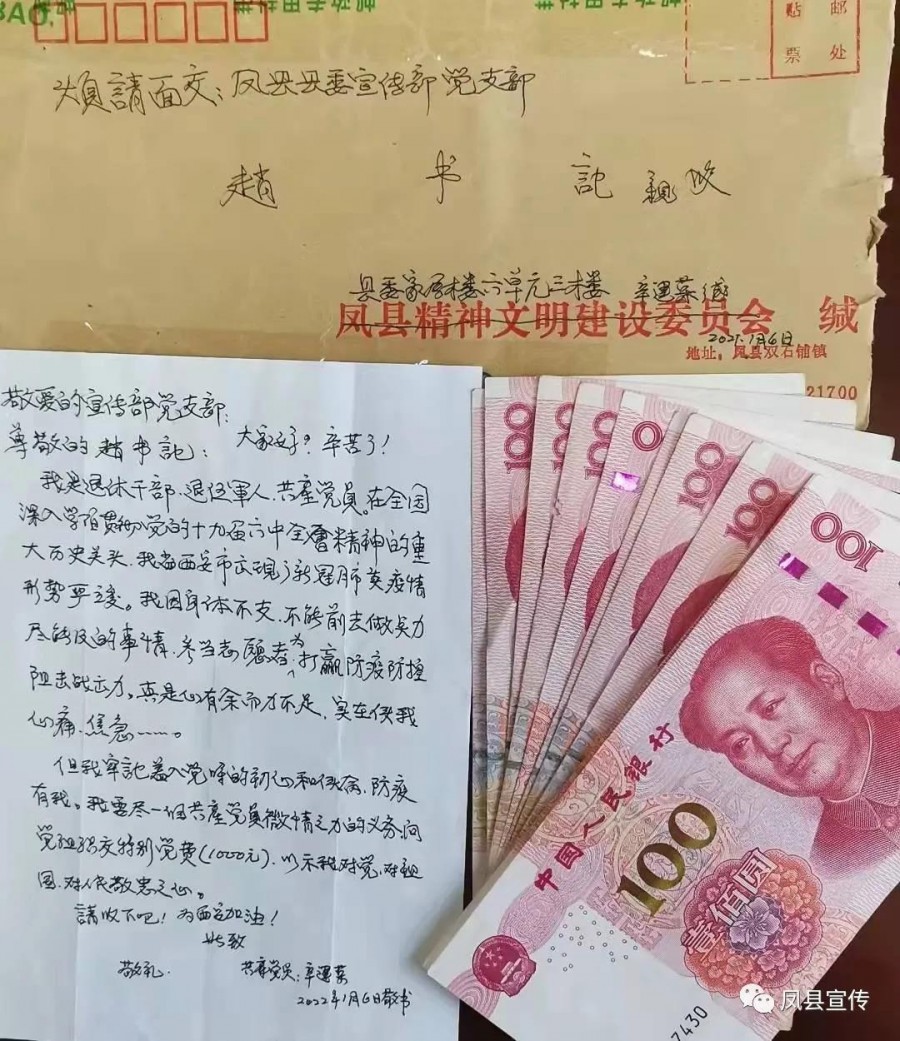 贴 邮
票 处
烦請面交：凤县县委宣传部党支部
趙 书 記 親收
县委家属楼六单元三楼 辛運菜缄
凤县精神文明建设委员会 缄
2021.1月6日
地址：凤县双石铺镇
21700
敬爱的宣传部党支部：
尊敬的趙书記： 大家好？辛苦了！
我是退休干部、退伍軍人、共產党员。在全国
深入学習贯彻党的十九届六中全會精神的重
大历史关头，我省西安市出现了新冠肺炎疫情
形势严峻。我因身体不支，不能前去做实力
尽能及的事情，参当志願者，为打赢防疫防控
阻击战出力。真是心有余而力不足，实在使我
心痛、焦急……。
但我牢記着入党時的初心和使命，防疫
有我。我要尽一個共產党员微情之力的义务向
党组织交特别党费(1000元)，以示我对党、对祖
国、对人民敬忠之心。
請收下吧！为西安加油！
此致
敬礼 共產党员：辛運菜
2022年1月6日敬书
100
100
100
0
100
100
100
中国人民银行
100
壹佰圆
7430
凤县宣传